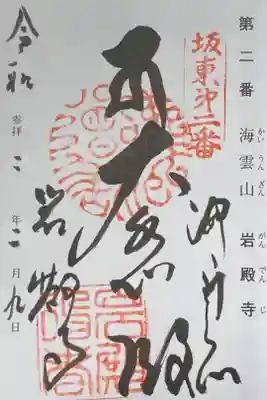 第二番 海雲山 岩殿寺
かいうんざん がんでんじ
坂東㐧二番
大悲殿
岩殿寺
令和
参拝 二年二月九日